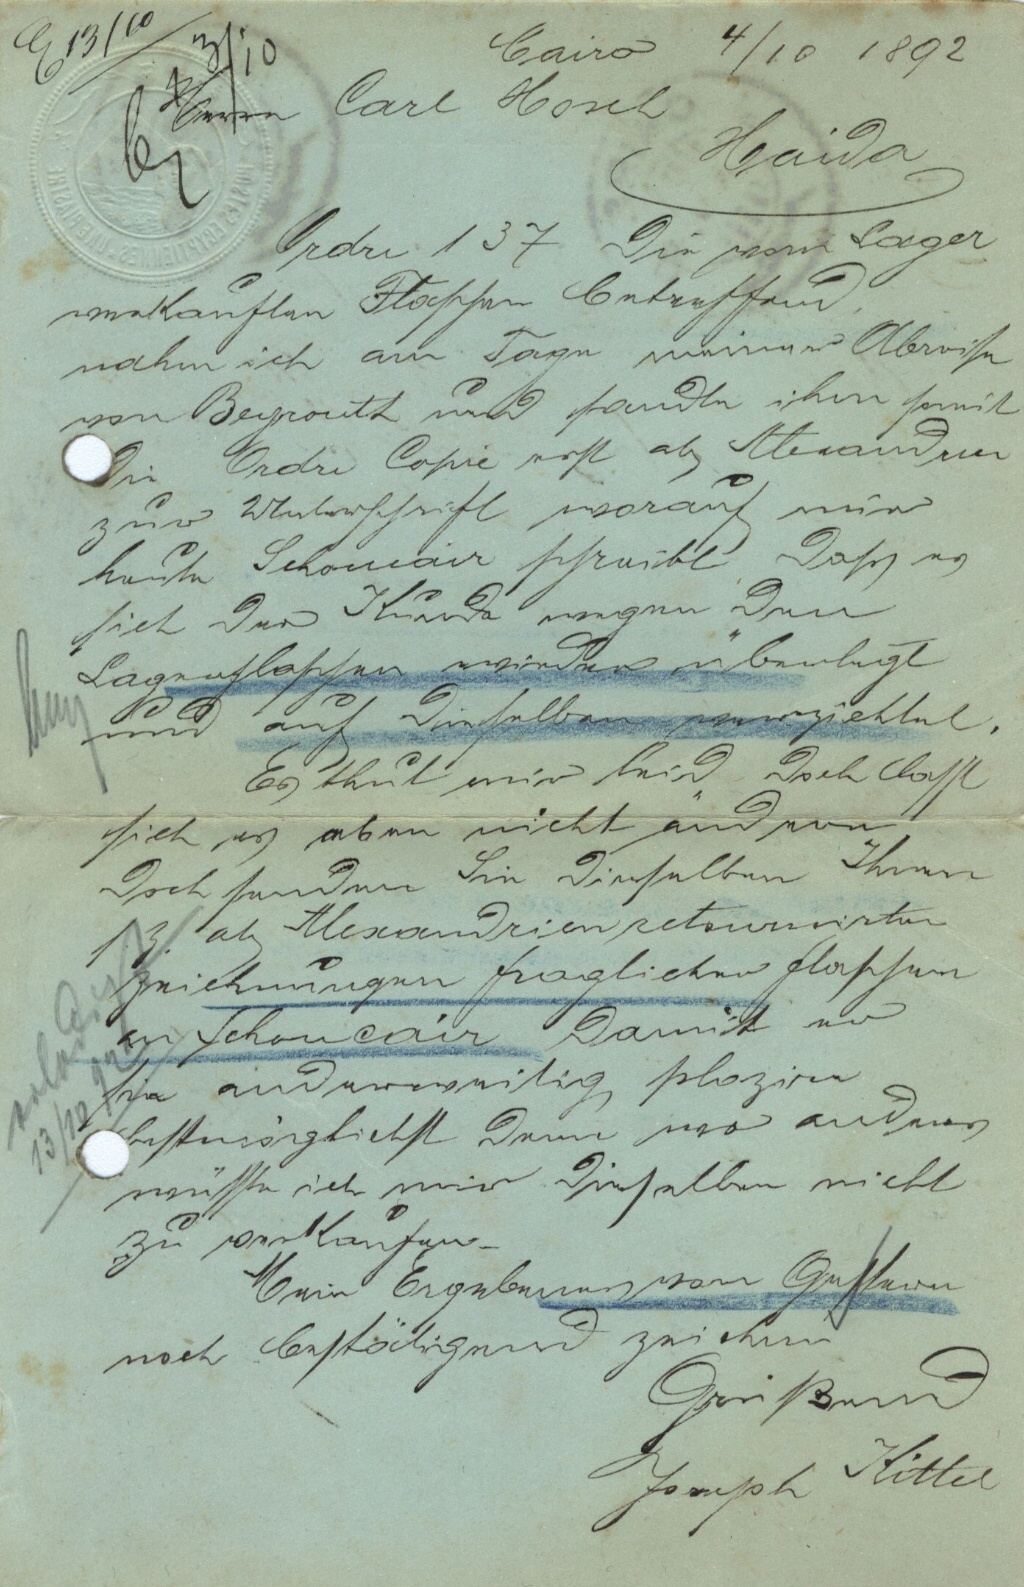 E 13/10
3/10
Cairo 4/10 1892
Herrn Carl Hosch
Haida
Ordre 137 Die vom Lager
verkauften Flaschen betreffend,
nahm ich am Tage meiner Abreise
von Beyrouth und sandte ihm somit
die Ordre Copie erst ab Alexandrien
zur Unterschrift worauf mir
heute Schoucair schreibt, dass es
sich der Kunde wegen den
Lagerflaschen wieder überlegt
und auf dieselben verzichtet.
Es thut mir leid doch lässt
sich es eben nicht ändern
doch senden Sie dieselben Ihnen
s. z. ab Alexandrien retournirten
Zeichnungen fraglicher Flaschen
an Schoucair damit er
sie anderweitig plazire
bestmöglichst denn wo anders
13/10 92
wüsste ich mir dieselben nicht
zu verkaufen.
Mein Ergebenes von Gestern
noch bestätigend zeichne
Grüßend
Joseph Kittel